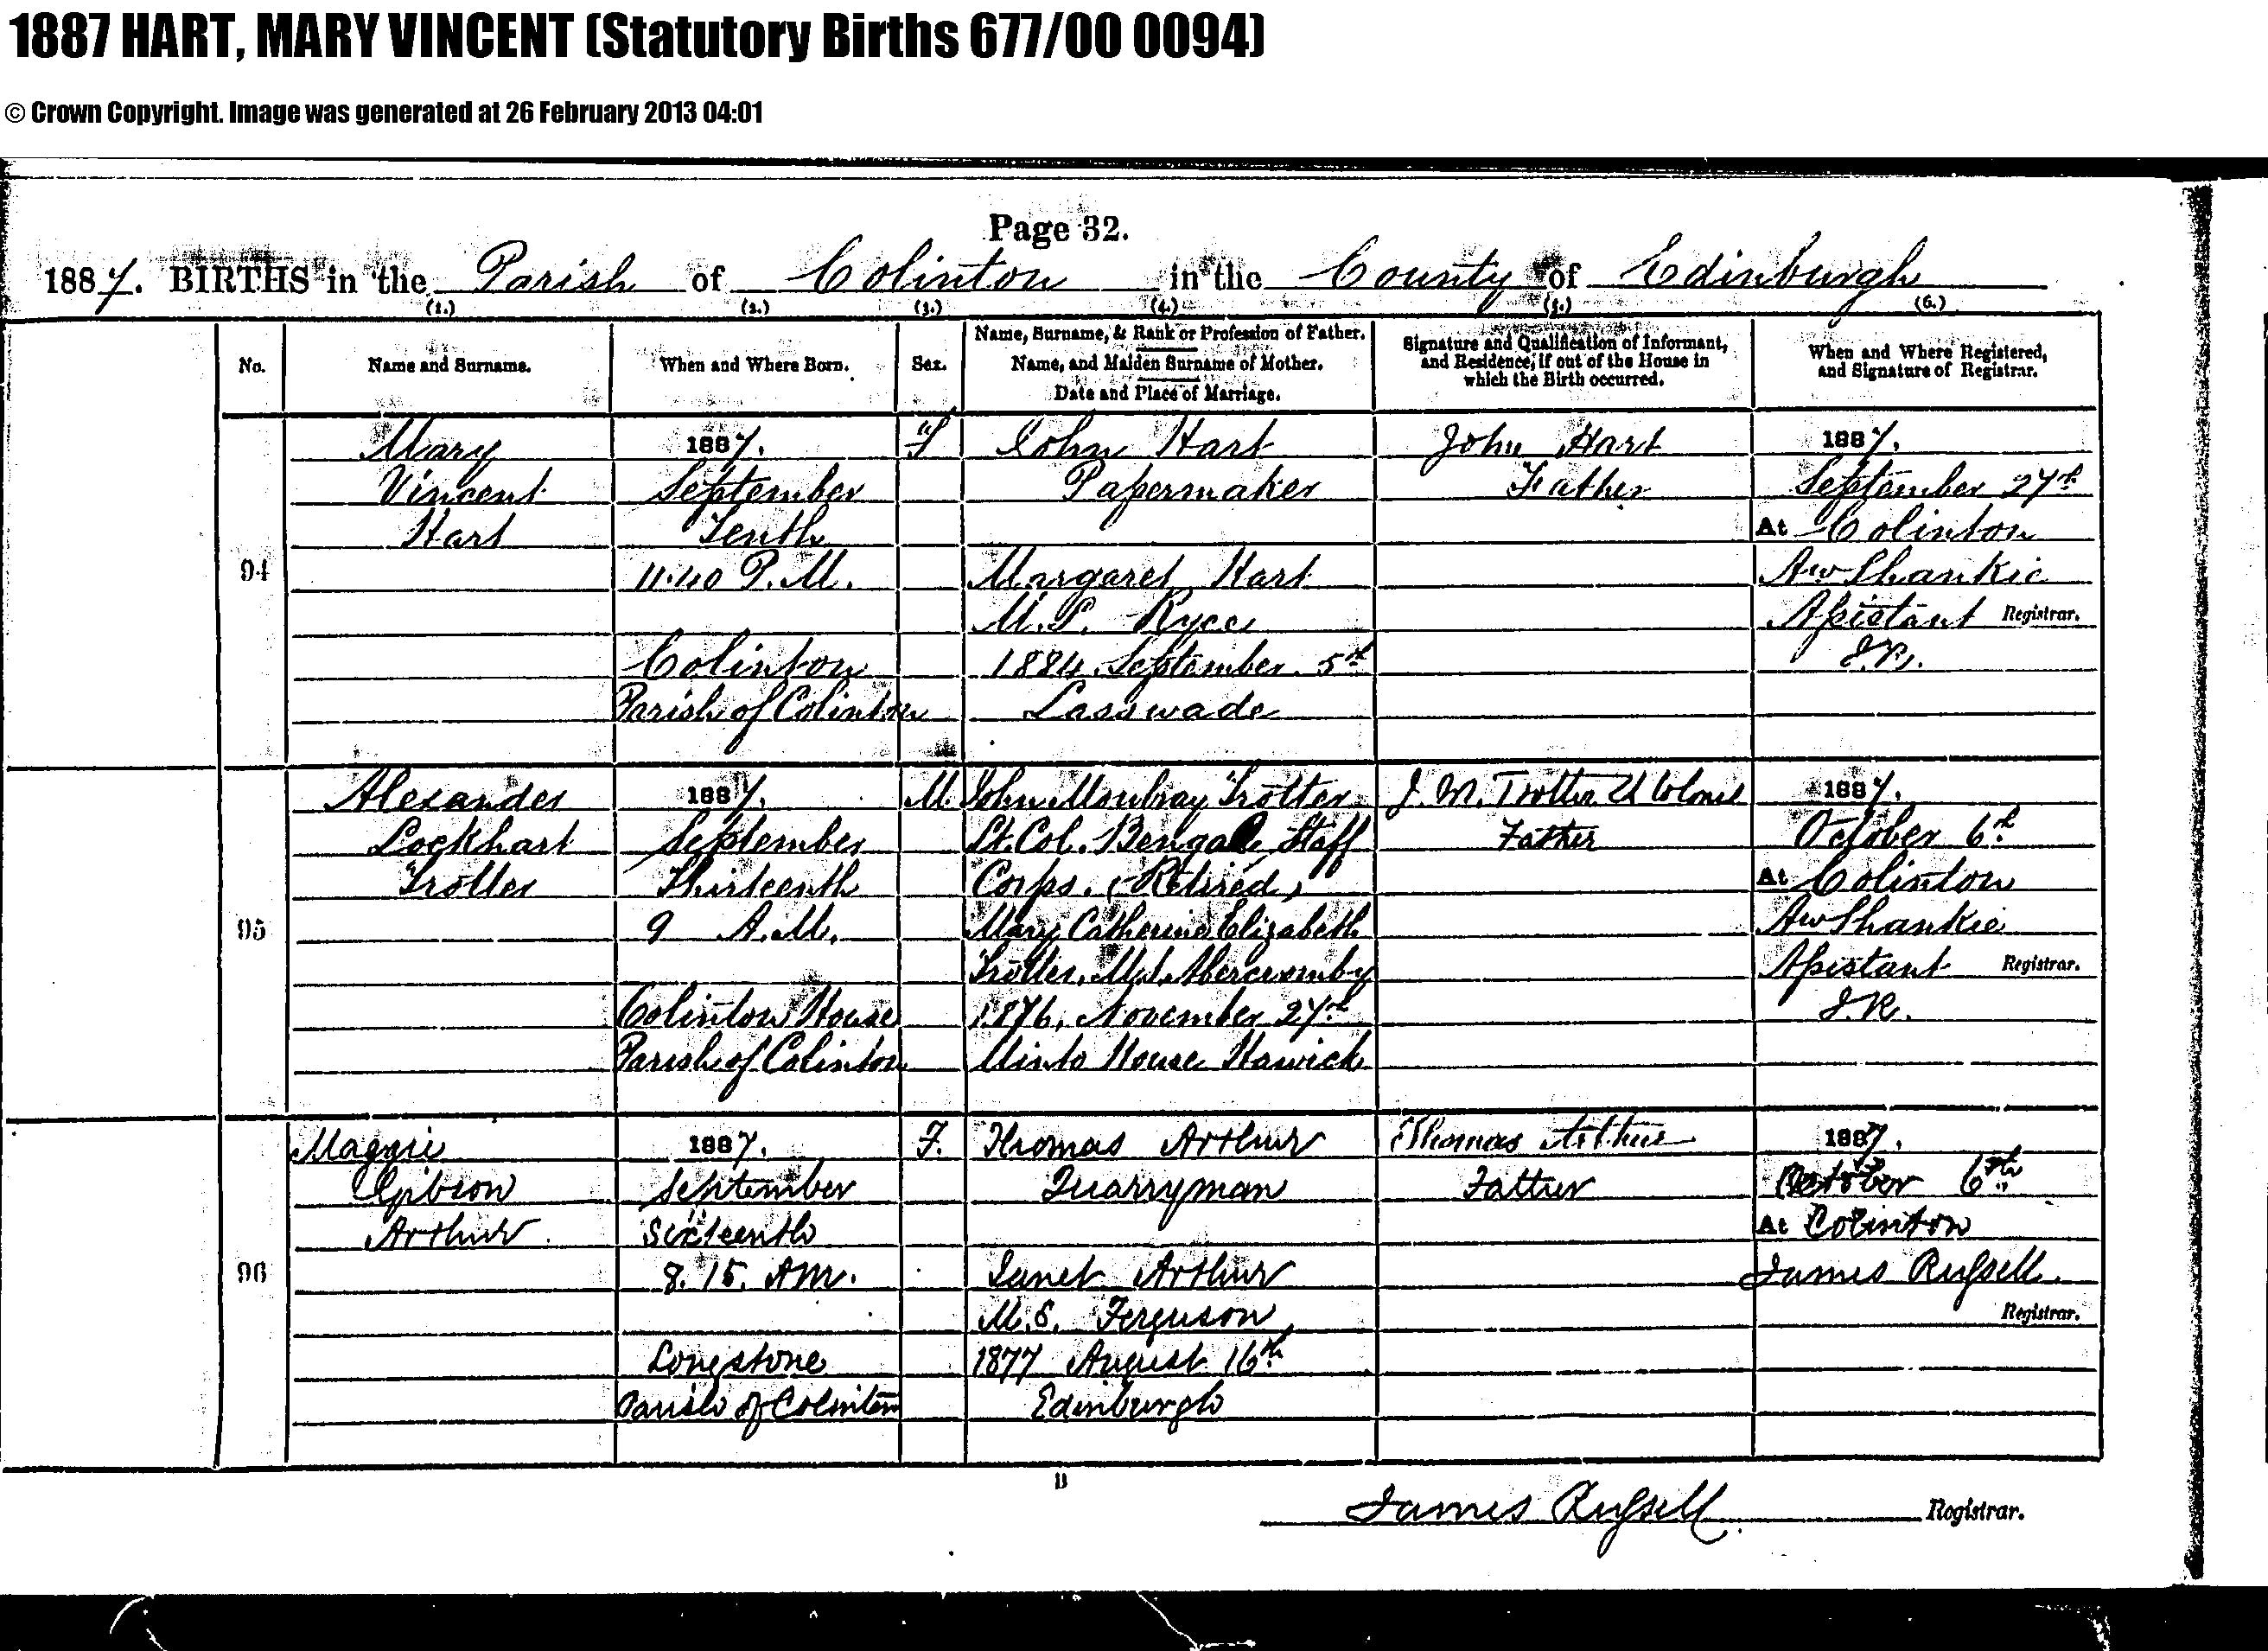 1887 HART, MARY VINCENT (Statutory Births 677/00 0094)
© Crown Copyright. Image was generated at 26 February 2013 04:01
Page 32.
1887. BIRTHS in the Parish of Colinton in the County of Edinburgh
(1.) (2.) (3.) (4.) (5.) (6.)
No.
Name and Surname.
When and Where Born.
Sex.
Name, Surname, & Rank or Profession of Father.
Name, and Maiden Surname of Mother.
Date and Place of Marriage.
Signature and Qualification of Informant,
and Residence, if out of the House in
which the Birth occurred.
When and Where Registered,
and Signature of Registrar.
94
Mary
Vincent
Hart
1887.
September
Tenth
11.40 P.M.
Colinton
Parish of Colinton
F
John Hart
Papermaker
Margaret Hart
M.S. Ryce
1884, September 5th
Lasswade
John Hart
Father
1887.
September 27th
At Colinton
Aw Shankie
Assistant Registrar.
J.R.
95
Alexander
Lockhart
Trotter
1887.
September
Thirteenth
9 A.M.
Colinton House
Parish of Colinton
M.
John Moubray Trotter
Lt. Col. Bengal Staff
Corps. (Retired)
Mary Catherine Elizabeth
Trotter, M.S. Abercromby
1876, November 27th
Minto House Hawick
J. M. Trotter Lt Colonel
Father
1887.
October 6th
At Colinton
Aw Shankie
Assistant Registrar.
J.R.
96
Maggie
Gibson
Arthur
1887.
September
Sixteenth
8.15. AM.
Longstone
Parish of Colinton
F.
Thomas Arthur
Quarryman
Janet Arthur
M.S. Ferguson
1877 August 16th
Edinburgh
Thomas Arthur
Father
1887.
October 6th
At Colinton
James Russell
Registrar.
B
James Russell Registrar.